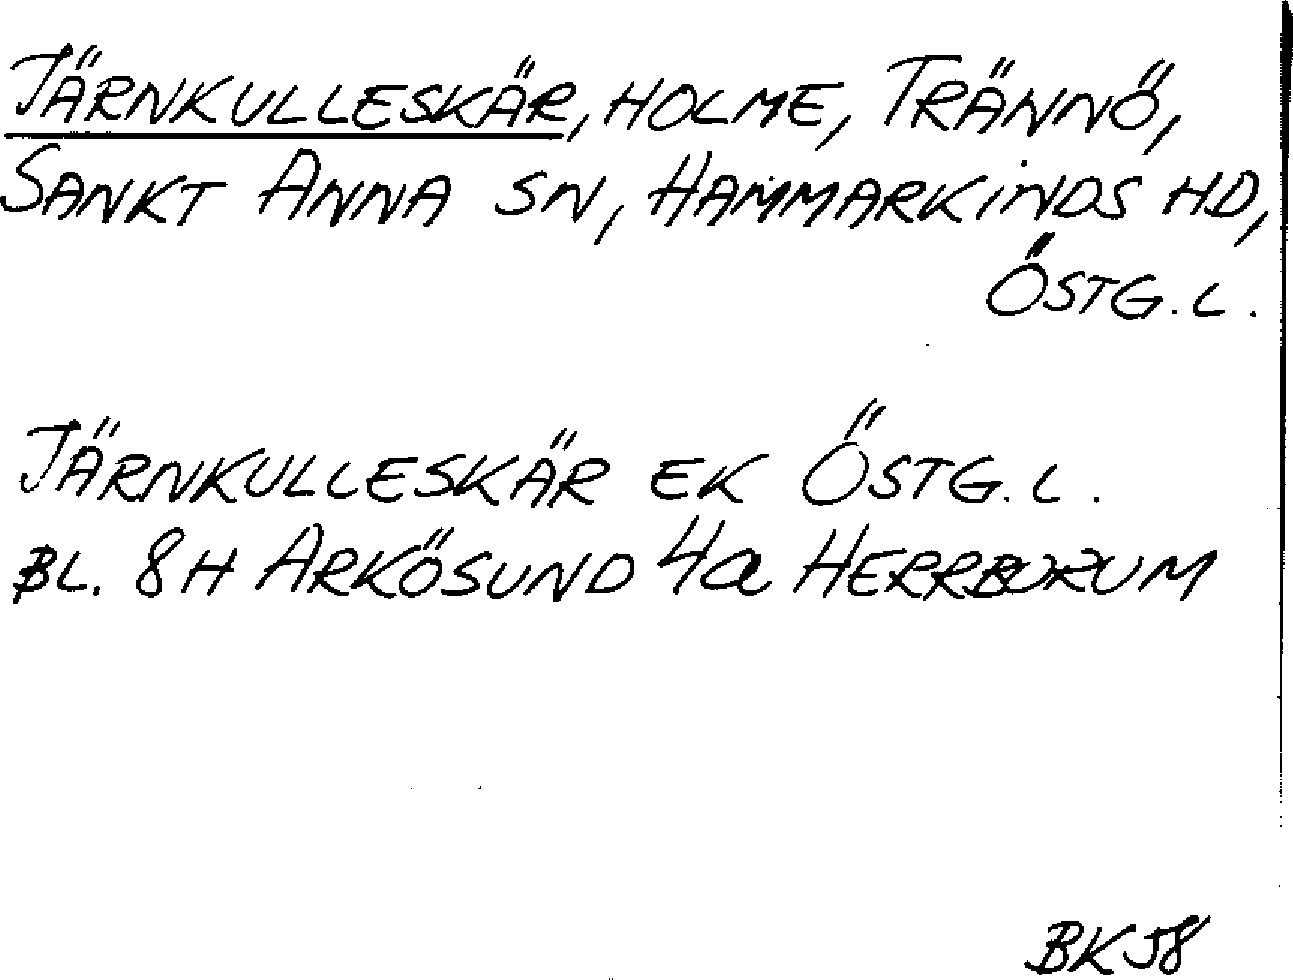 JÄRNKULLESKÄR, HOLME, TRÄNNÖ,
SANKT ANNA SN, HAMMARKINDS HD,
ÖSTG. L.
JÄRNKULLESKÄR EK ÖSTG. L.
BL. 8H ARKÖSUND 4a HERRBORUM
BK 58